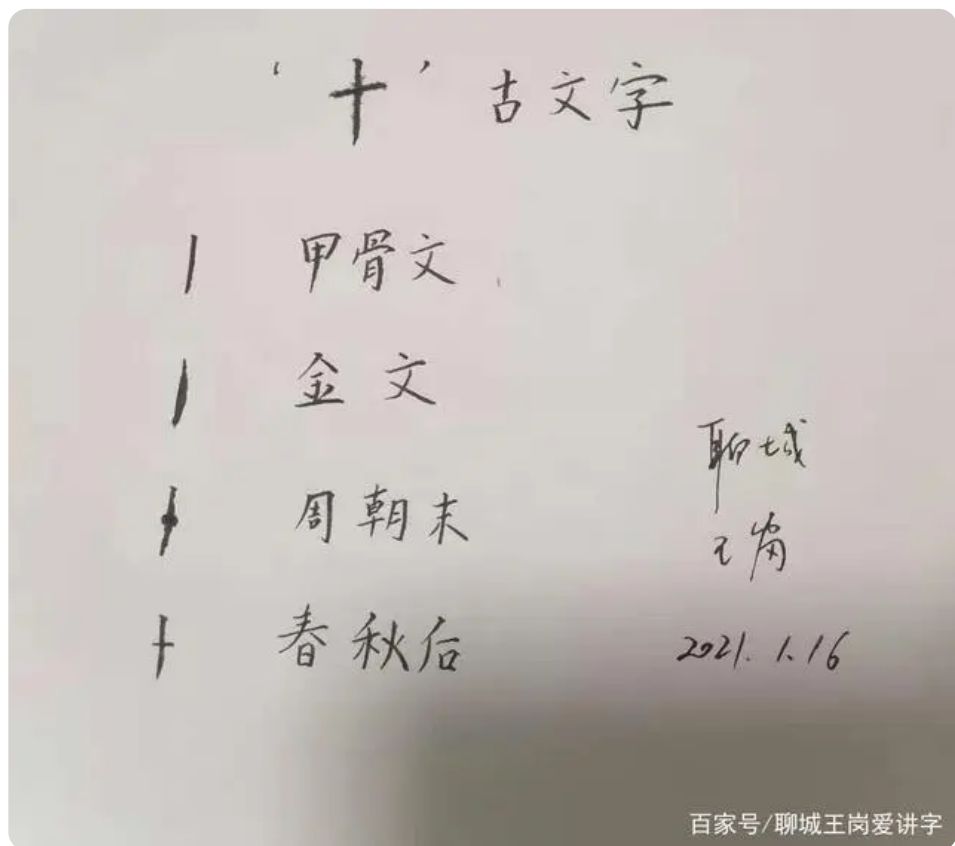 ‘十’古文字
丨 甲骨文
丨 金文
周朝末
十 春秋后
聊城
王岗
2021.1.16
百家号/聊城王岗爱讲字